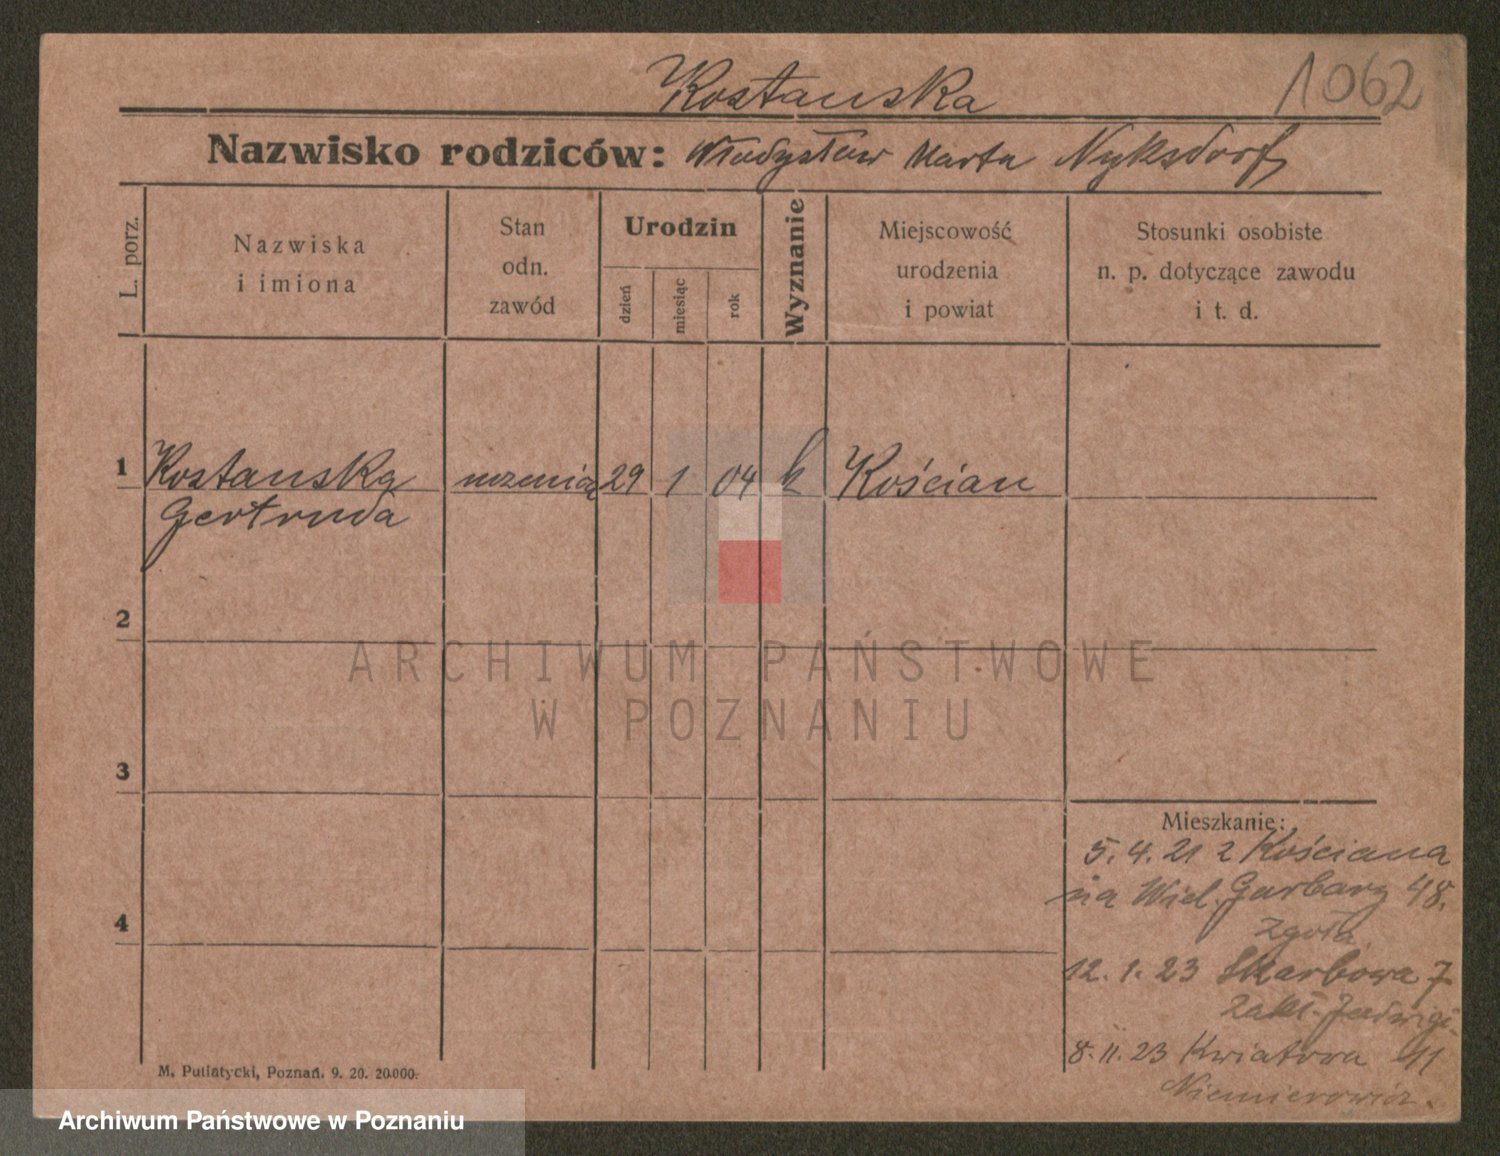 Kostanska
1062
Nazwisko rodziców: Władysław Marta Nyksdorf
L. porz.
Nazwiska
i imiona
Stan
odn.
zawód
Urodzin
dzień
miesiąc
rok
Wyznanie
Miejscowość
urodzenia
i powiat
Stosunki osobiste
n. p. dotyczące zawodu
i t. d.
1 Kostanska 29 1 04 k Kościan
Gertruda
2
ARCHIWUM PAŃSTWOWE
W POZNANIU
3
Mieszkanie:
5. 4. 21 z Kościana
na Wiel. Garbary 48.
Zgoła
4
12. 1. 23 Skarbowa 7
Zakł. Jadwigi
8. 11. 23 Kwiatowa 11
Niemierowicz.
M. Putiatycki, Poznań. 9. 20. 20.000.
Archiwum Państwowe w Poznaniu